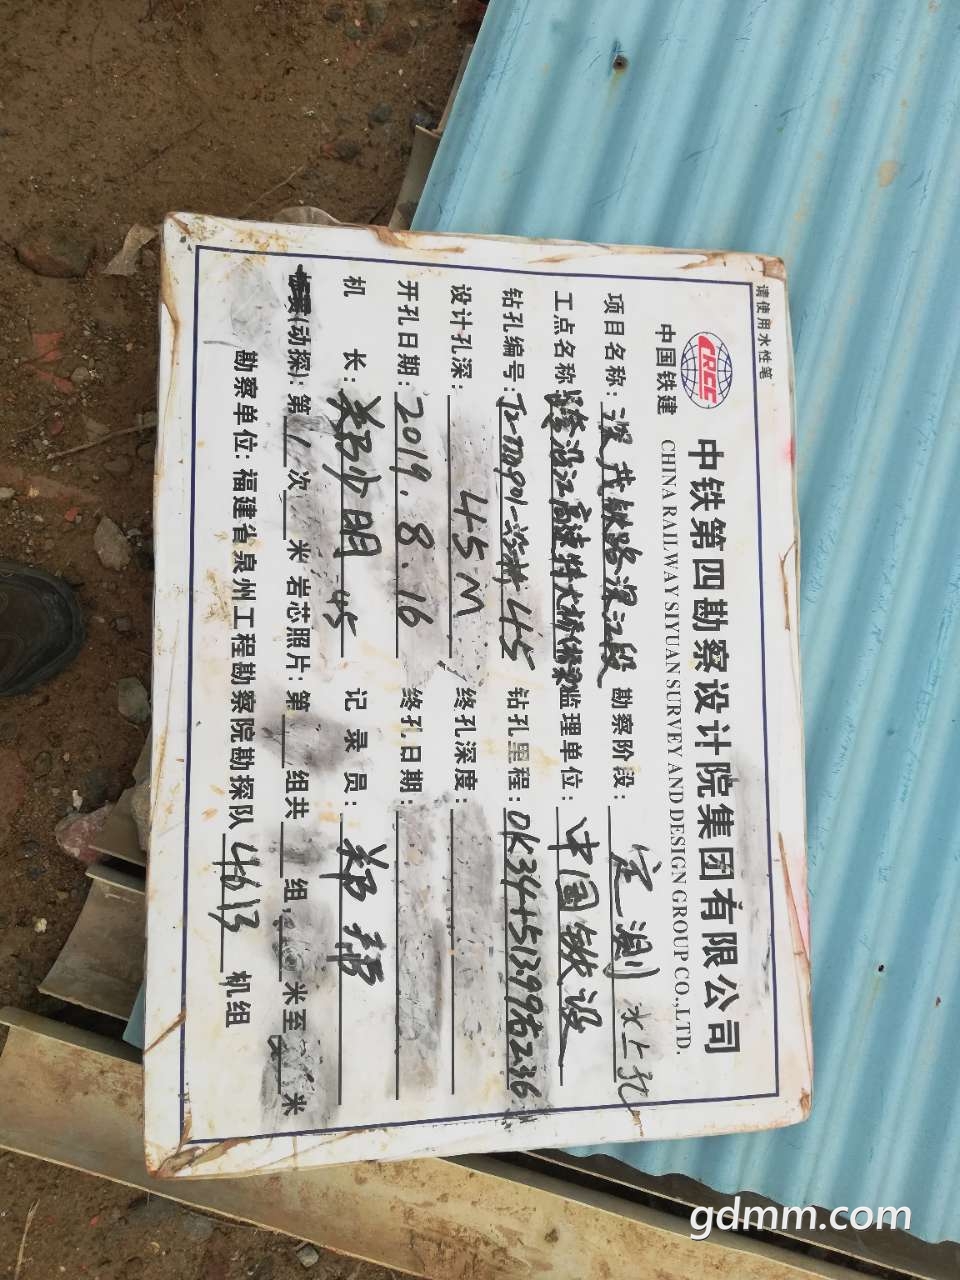 请使用水性笔
CRCC
中国铁建
中铁第四勘察设计院集团有限公司
CHINA RAILWAY SIYUAN SURVEY AND DESIGN GROUP CO.,LTD.
项目名称: 深茂铁路深江段 勘察阶段: 定测 水上孔
工点名称: 跨沿江高速特大桥 监理单位: 中国铁设
钻孔编号: 45 钻孔里程: DK34+513.99右2.36
设计孔深: 45M 终孔深度:
开孔日期: 2019.8.16 终孔日期:
机 长: 郑少明 记录员: 郑
(动探): 第1次 米 岩芯照片: 第 组共 组, 米至 米
勘察单位: 福建省泉州工程勘察院勘探队 机组
gdmm.com